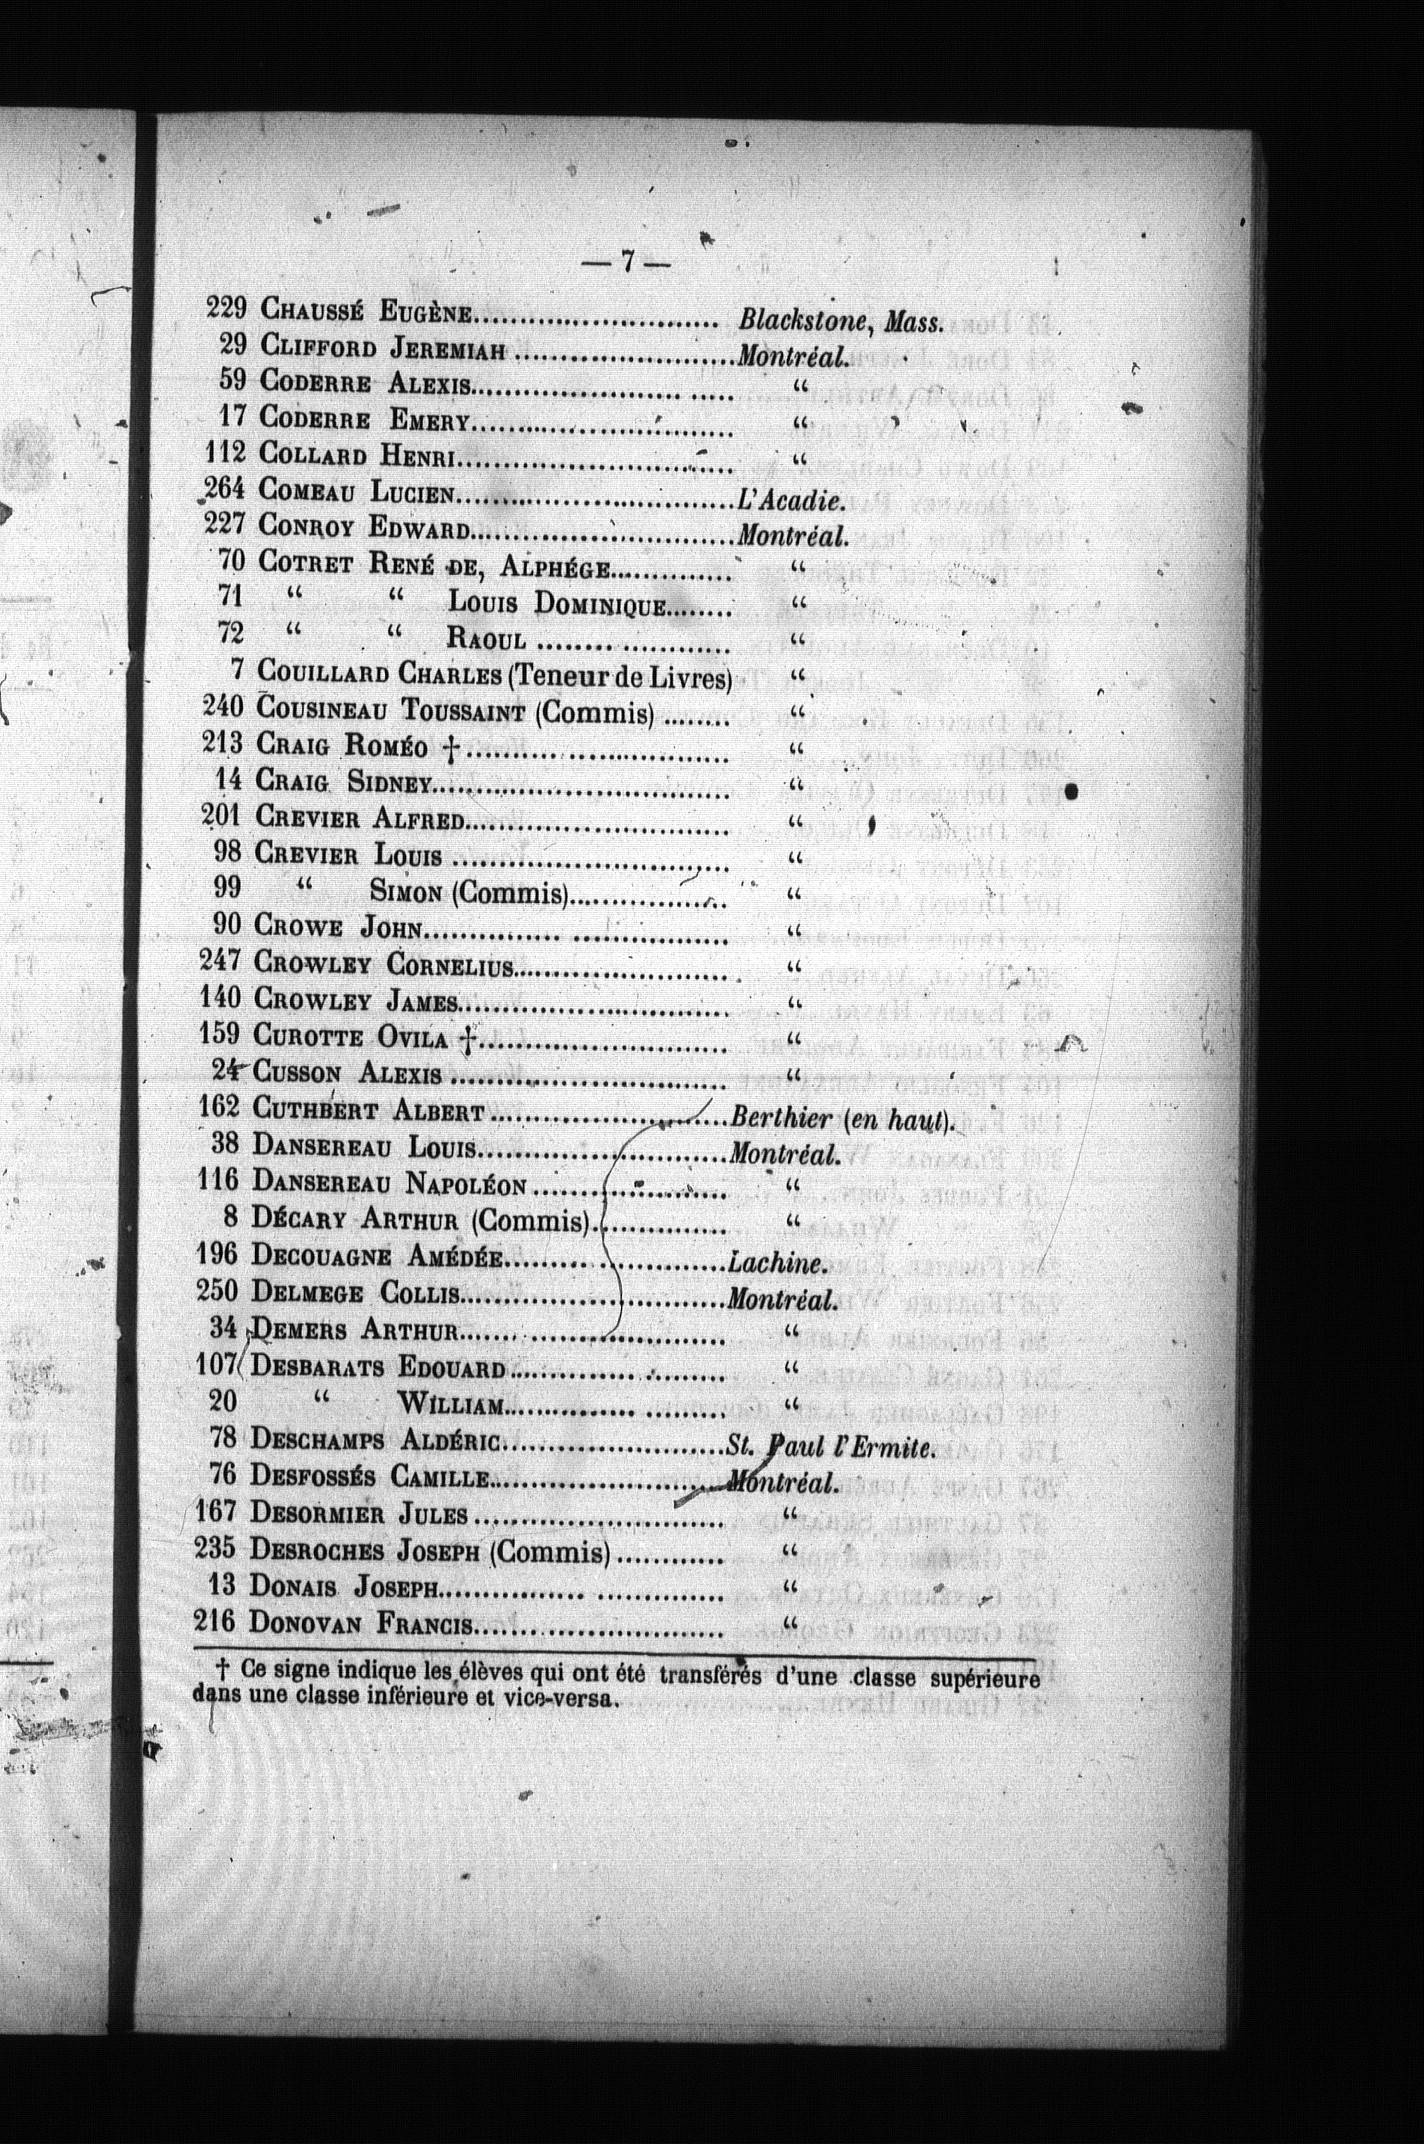 — 7 —
229 CHAUSSÉ EUGÈNE........................... Blackstone, Mass.
29 CLIFFORD JEREMIAH ........................Montréal.
59 CODERRE ALEXIS............................. “
17 CODERRE EMERY............................. “
112 COLLARD HENRI............................. “
264 COMEAU LUCIEN.............................L'Acadie.
227 CONROY EDWARD............................Montréal.
70 COTRET RENÉ DE, ALPHÉGE.............. “
71 “ “ LOUIS DOMINIQUE........ “
72 “ “ RAOUL .................... “
7 COUILLARD CHARLES (Teneur de Livres) “
240 COUSINEAU TOUSSAINT (Commis) ........ “
213 CRAIG ROMÉO †............................ “
14 CRAIG SIDNEY................................ “
201 CREVIER ALFRED............................ “
98 CREVIER LOUIS ............................. “
99 “ SIMON (Commis)................. “
90 CROWE JOHN................................ “
247 CROWLEY CORNELIUS........................ “
140 CROWLEY JAMES............................. “
159 CUROTTE OVILA †........................... “
24 CUSSON ALEXIS ............................. “
162 CUTHBERT ALBERT..........................Berthier (en haut).
38 DANSEREAU LOUIS...........................Montréal.
116 DANSEREAU NAPOLÉON..................... “
8 DÉCARY ARTHUR (Commis)............... “
196 DECOUAGNE AMÉDÉE........................Lachine.
250 DELMEGE COLLIS.............................Montréal.
34 DEMERS ARTHUR............................. “
107 DESBARATS EDOUARD....................... “
20 “ WILLIAM........................ “
78 DESCHAMPS ALDÉRIC........................St. Paul l'Ermite.
76 DESFOSSÉS CAMILLE.........................Montréal.
167 DESORMIER JULES........................... “
235 DESROCHES JOSEPH (Commis)............ “
13 DONAIS JOSEPH.............................. “
216 DONOVAN FRANCIS........................... “
† Ce signe indique les élèves qui ont été transférés d'une classe supérieure
dans une classe inférieure et vice-versa.